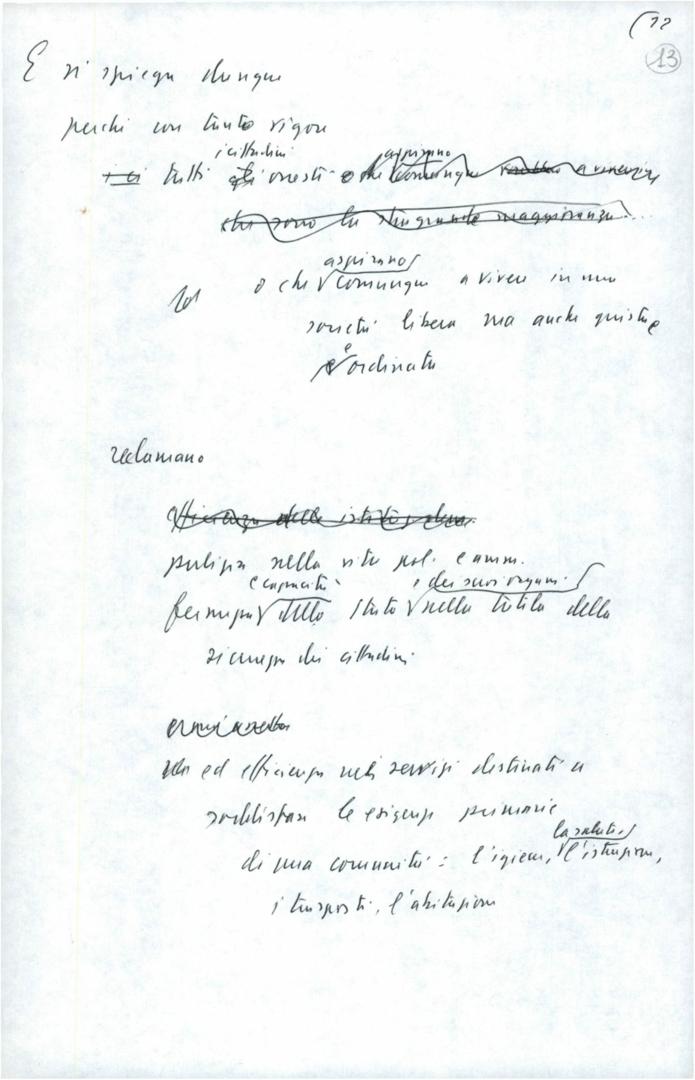 (12
13
E si spiega dunque
perché con tanto vigore
i cittadini aspirano
tutti gli onesti o che comunque a vivere in
che sono la stragrande maggioranza...
aspirano
o che comunque a vivere in una
società libera ma anche giusta e
e ordinata
reclamano
efficienza delle istituzioni
pulizia nella vita pol. e amm.
e capacità dei suoi organi
fermezza dello Stato nella tutela della
sicurezza dei cittadini
ed efficienza nei servizi destinati a
soddisfare le esigenze primarie
la salute,
di una comunità: l'igiene, l'istruzione,
i trasporti, l'abitazione